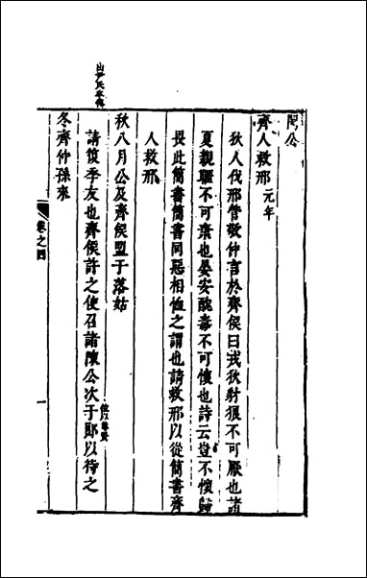 閔公
齊人救邢 元年
狄人伐邢管敬仲言於齊侯曰戎狄豺狼不可厭也諸
夏親暱不可棄也晏安酖毒不可懷也詩云豈不懷歸
畏此簡書簡書同惡相恤之謂也請救邢以從簡書齊
人救邢
秋八月公及齊侯盟于落姑
請復季友也齊侯許之使召諸陳公次于郎以待之
冬齊仲孫來
卷之四
一